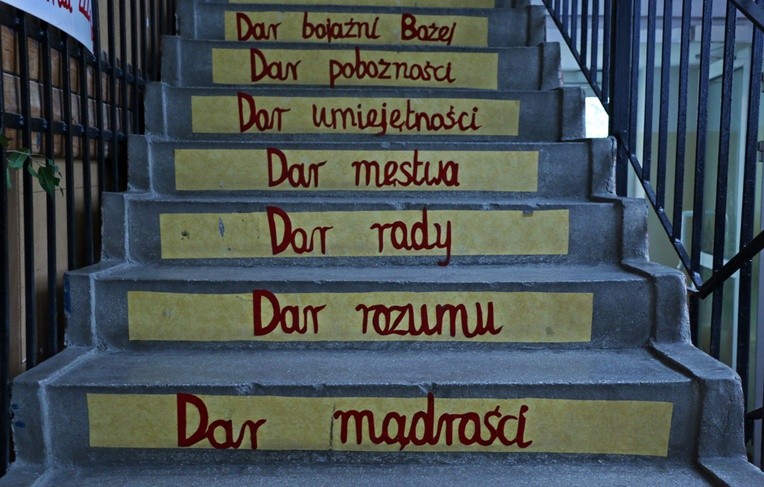 Dar bojaźni Bożej
Dar pobożności
Dar umiejętności
Dar męstwa
Dar rady
Dar rozumu
Dar mądrości